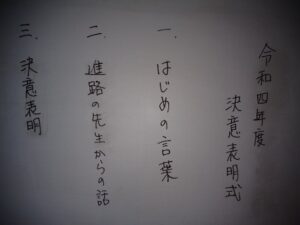 令和四年度
決意表明式
一、はじめの言葉
二、進路の先生からの話
三、決意表明